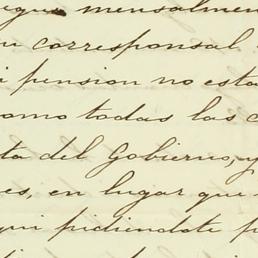 mensualmen
corresponsal
pension no esta
omo todas las c
ta del Gobierno, y
es, en lugar que
qui pidiendote p